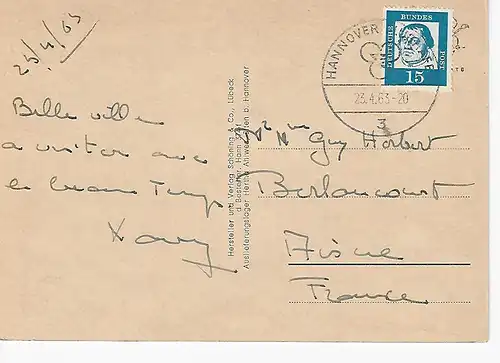 25/4/63
Belle ville
a visiter avec
le beau Temps
Xavy
Hersteller und Verlag Schöning & Co., Lübeck
d. Bestell-Nr. Hann
Auslieferungslager Hertha Ahlswede b. Hannover
HANNOVER
23.4.63-20
3
DEUTSCHE
BUNDES
POST
15
Mr Mme Guy Herbert
Berlancourt
Aisne
France